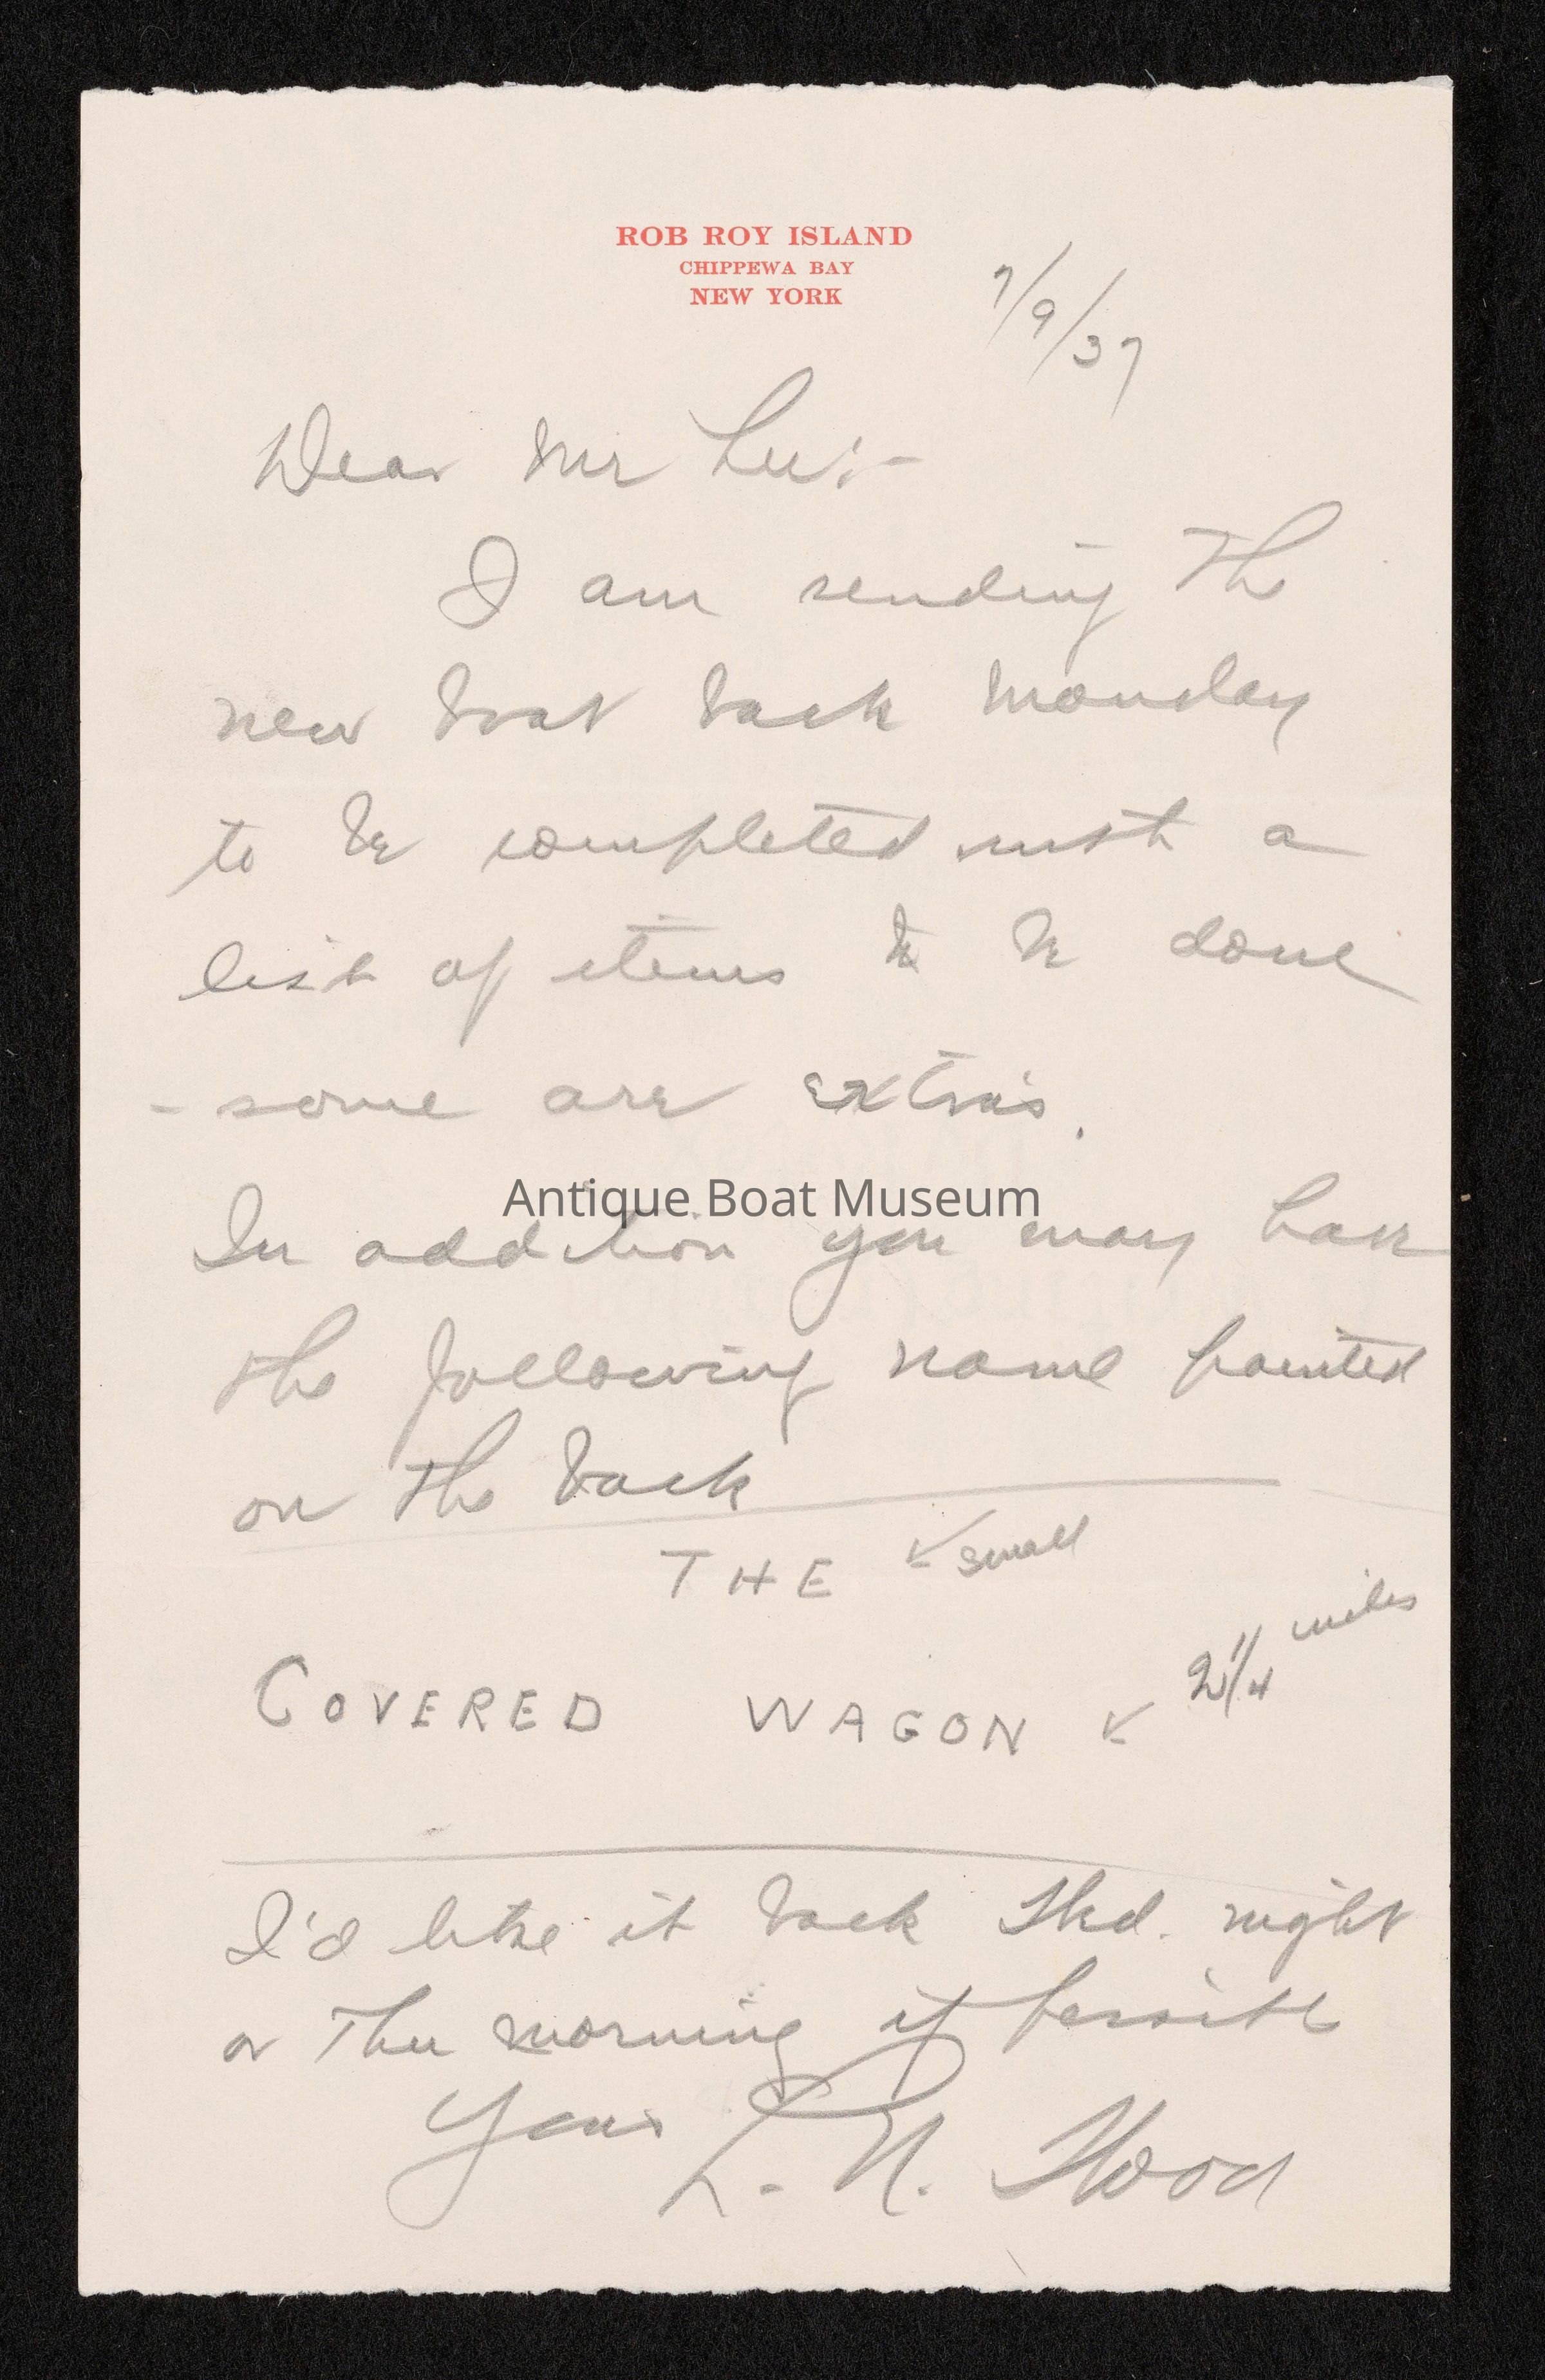 ROB ROY ISLAND
CHIPPEWA BAY
NEW YORK
7/9/37
Dear Mr Lee:-
I am sending the
new boat back Monday
to be completed with a
list of items to be done
- some are extras.
Antique Boat Museum
In addition you may have
the following name painted
on the back
THE ← small
COVERED WAGON ← 2 1/4
I'd like it back Wed. night
or Thu morning if possible
Yours L. N. Wood